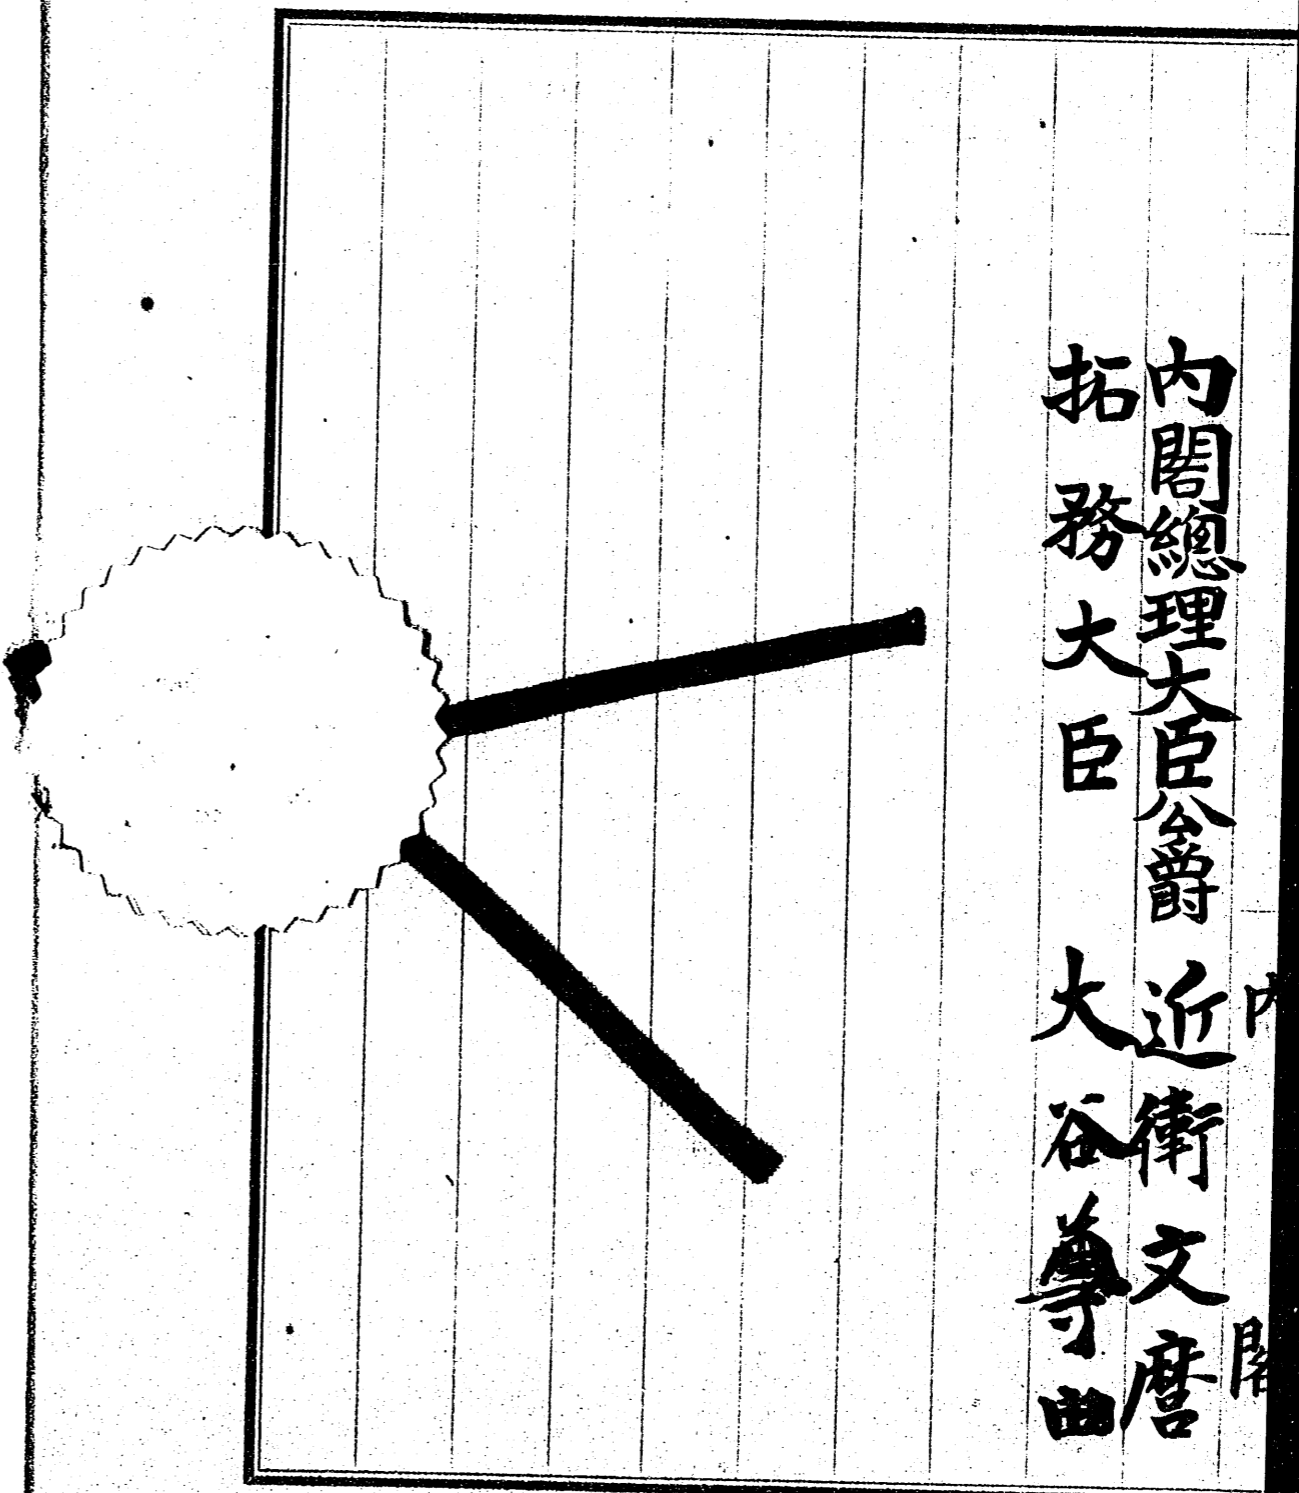 内閣
内閣總理大臣公爵 近衛文麿
拓務大臣 大谷尊由